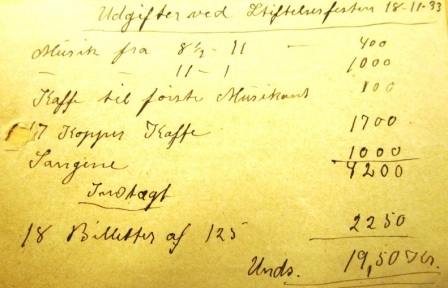 Udgifter ved Stiftelsesfesten 18-11-33
Musik fra 8½ - 11 — 400
— — 11 - 1 1000
Kaffe til første Musikant 100
17 Kopper Kaffe 1700
Sangene 1000
4200
Indtægt
18 Billetter af 125 2250
Unds. 19,50 Kr.